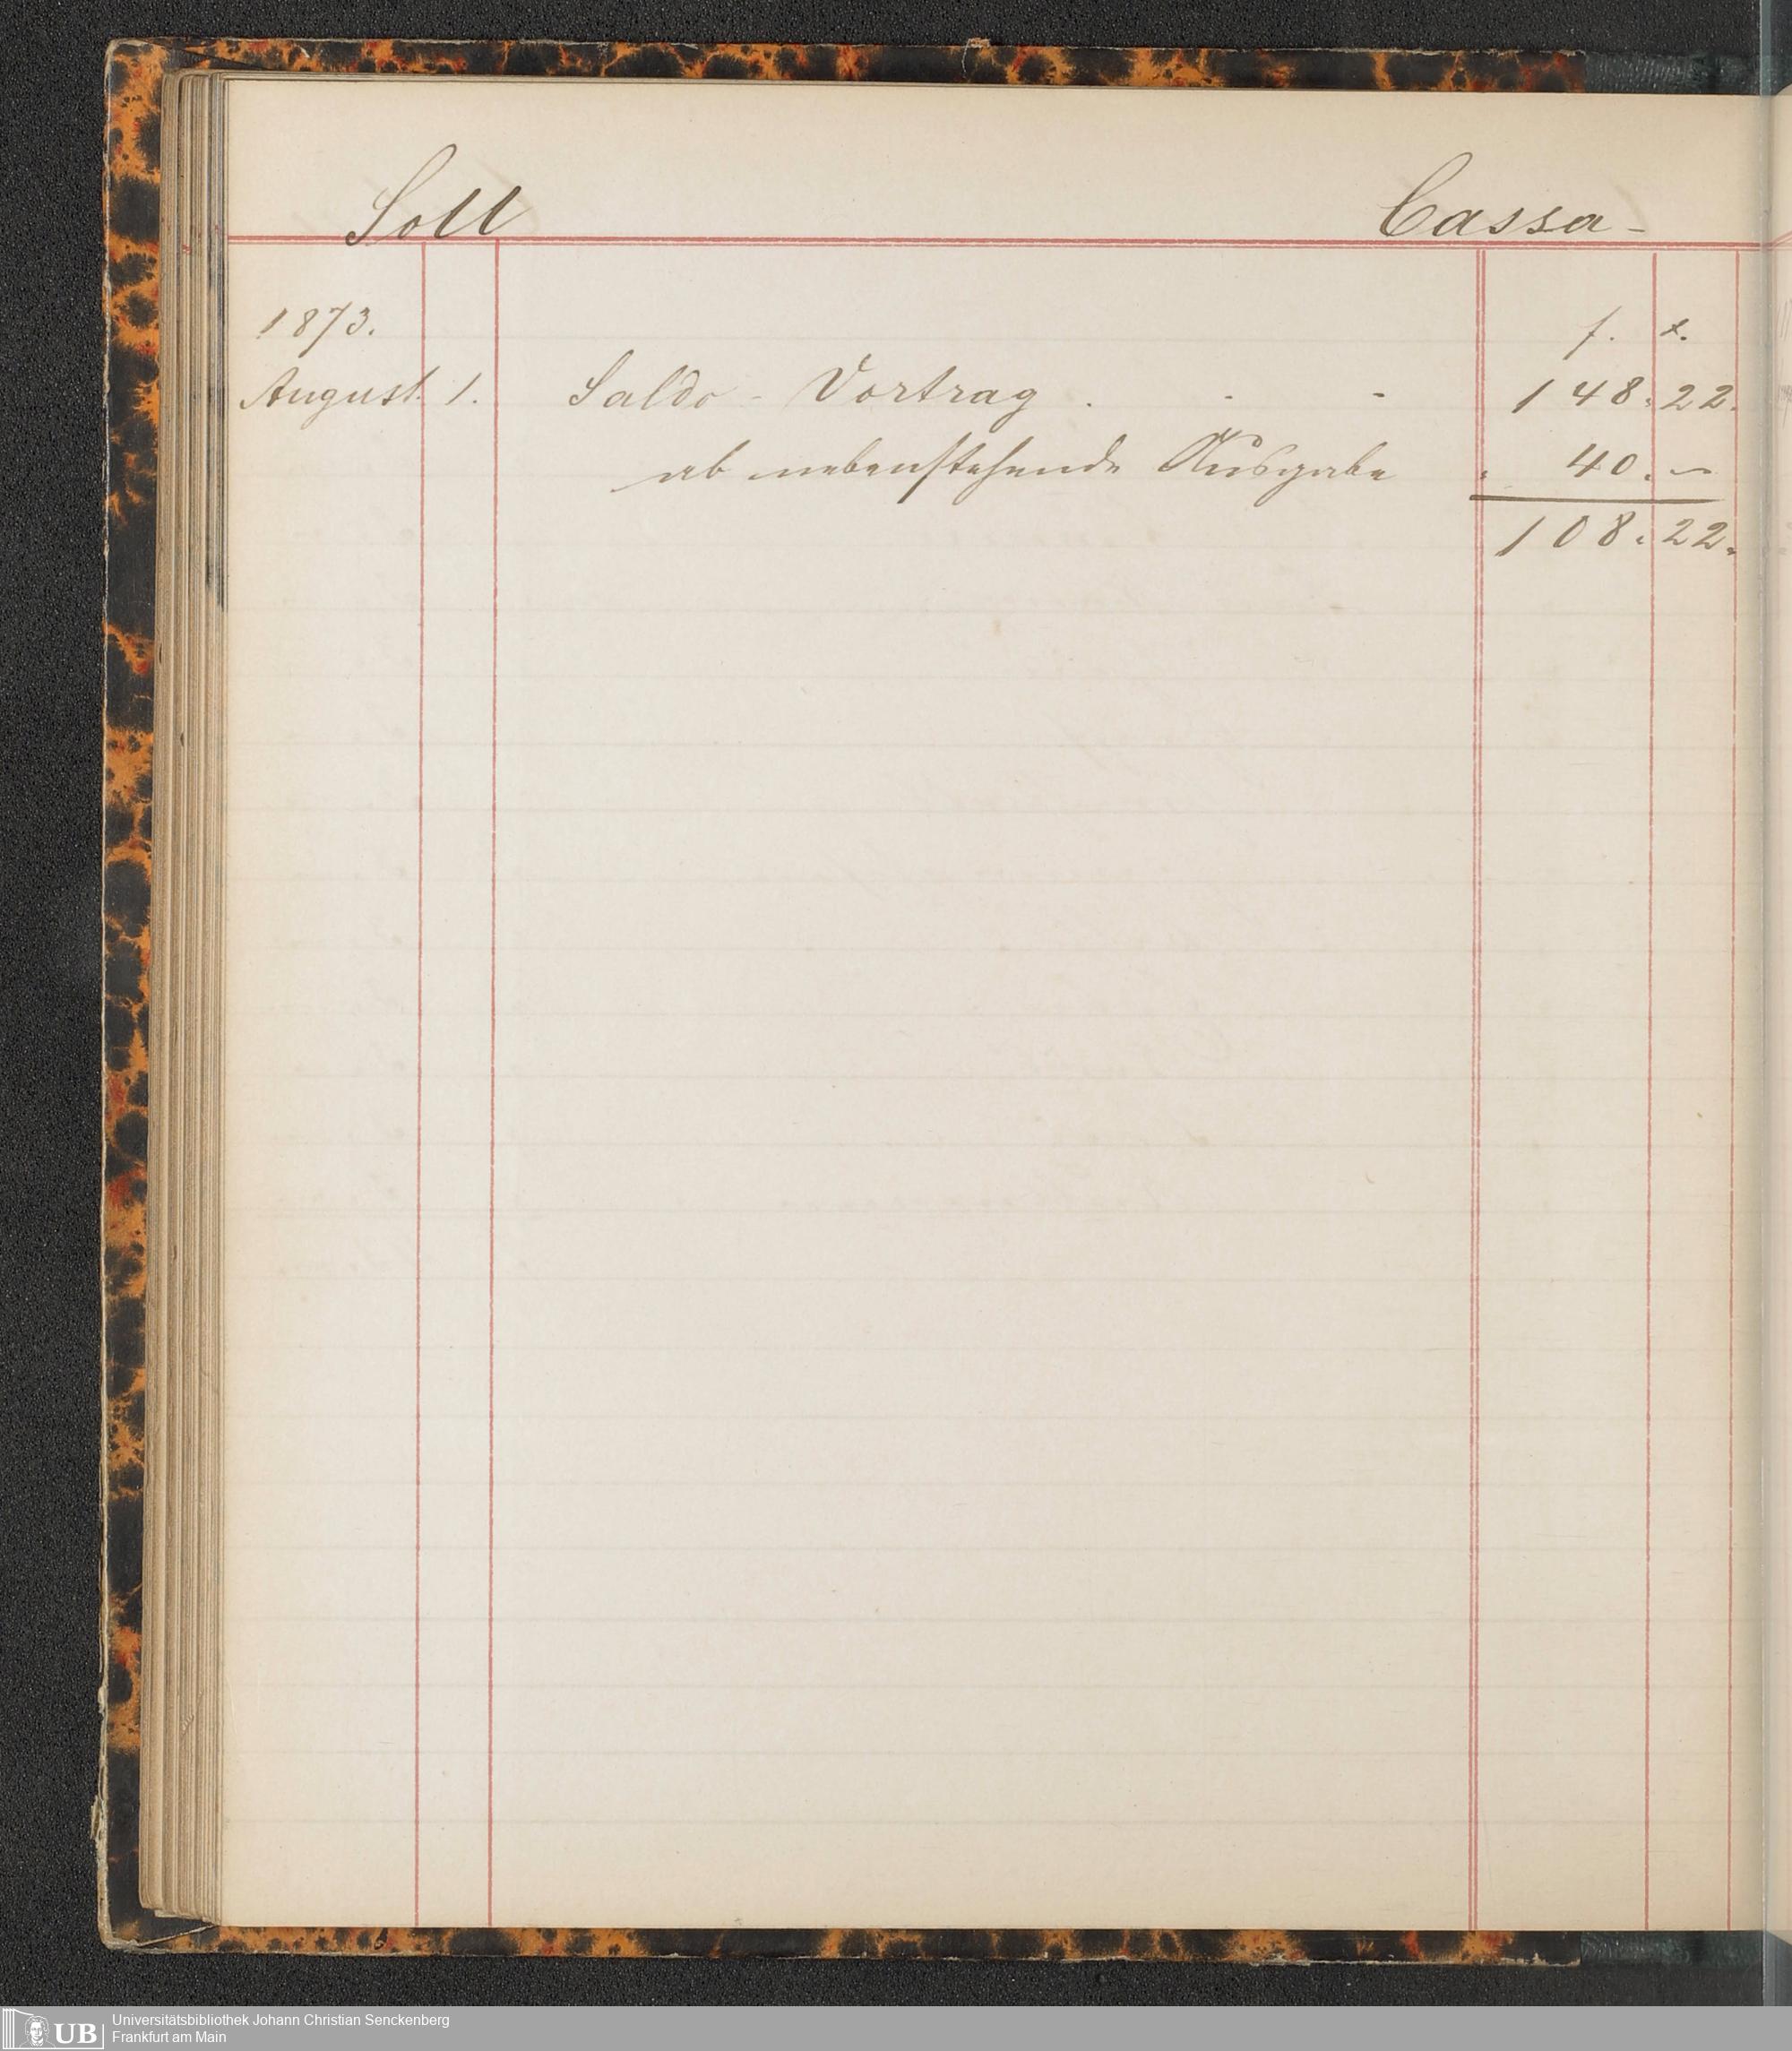 Soll Cassa-
1873. f. x.
August. 1. Saldo - Vortrag . - - 148. 22.
ab nebenstehende Ausgabe . 40. —
108. 22.
UB
Universitätsbibliothek Johann Christian Senckenberg
Frankfurt am Main